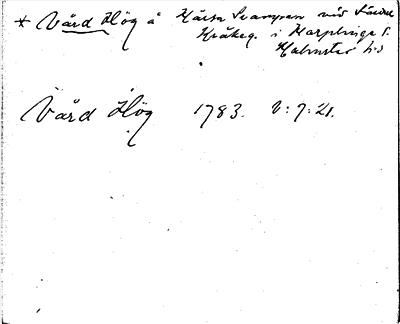 * Vård Hög å Kärsa Svampen vid Södra
Kråkeg. i Harplinge s.
Halmstad h:d
Vård Hög 1783. V:7:21.